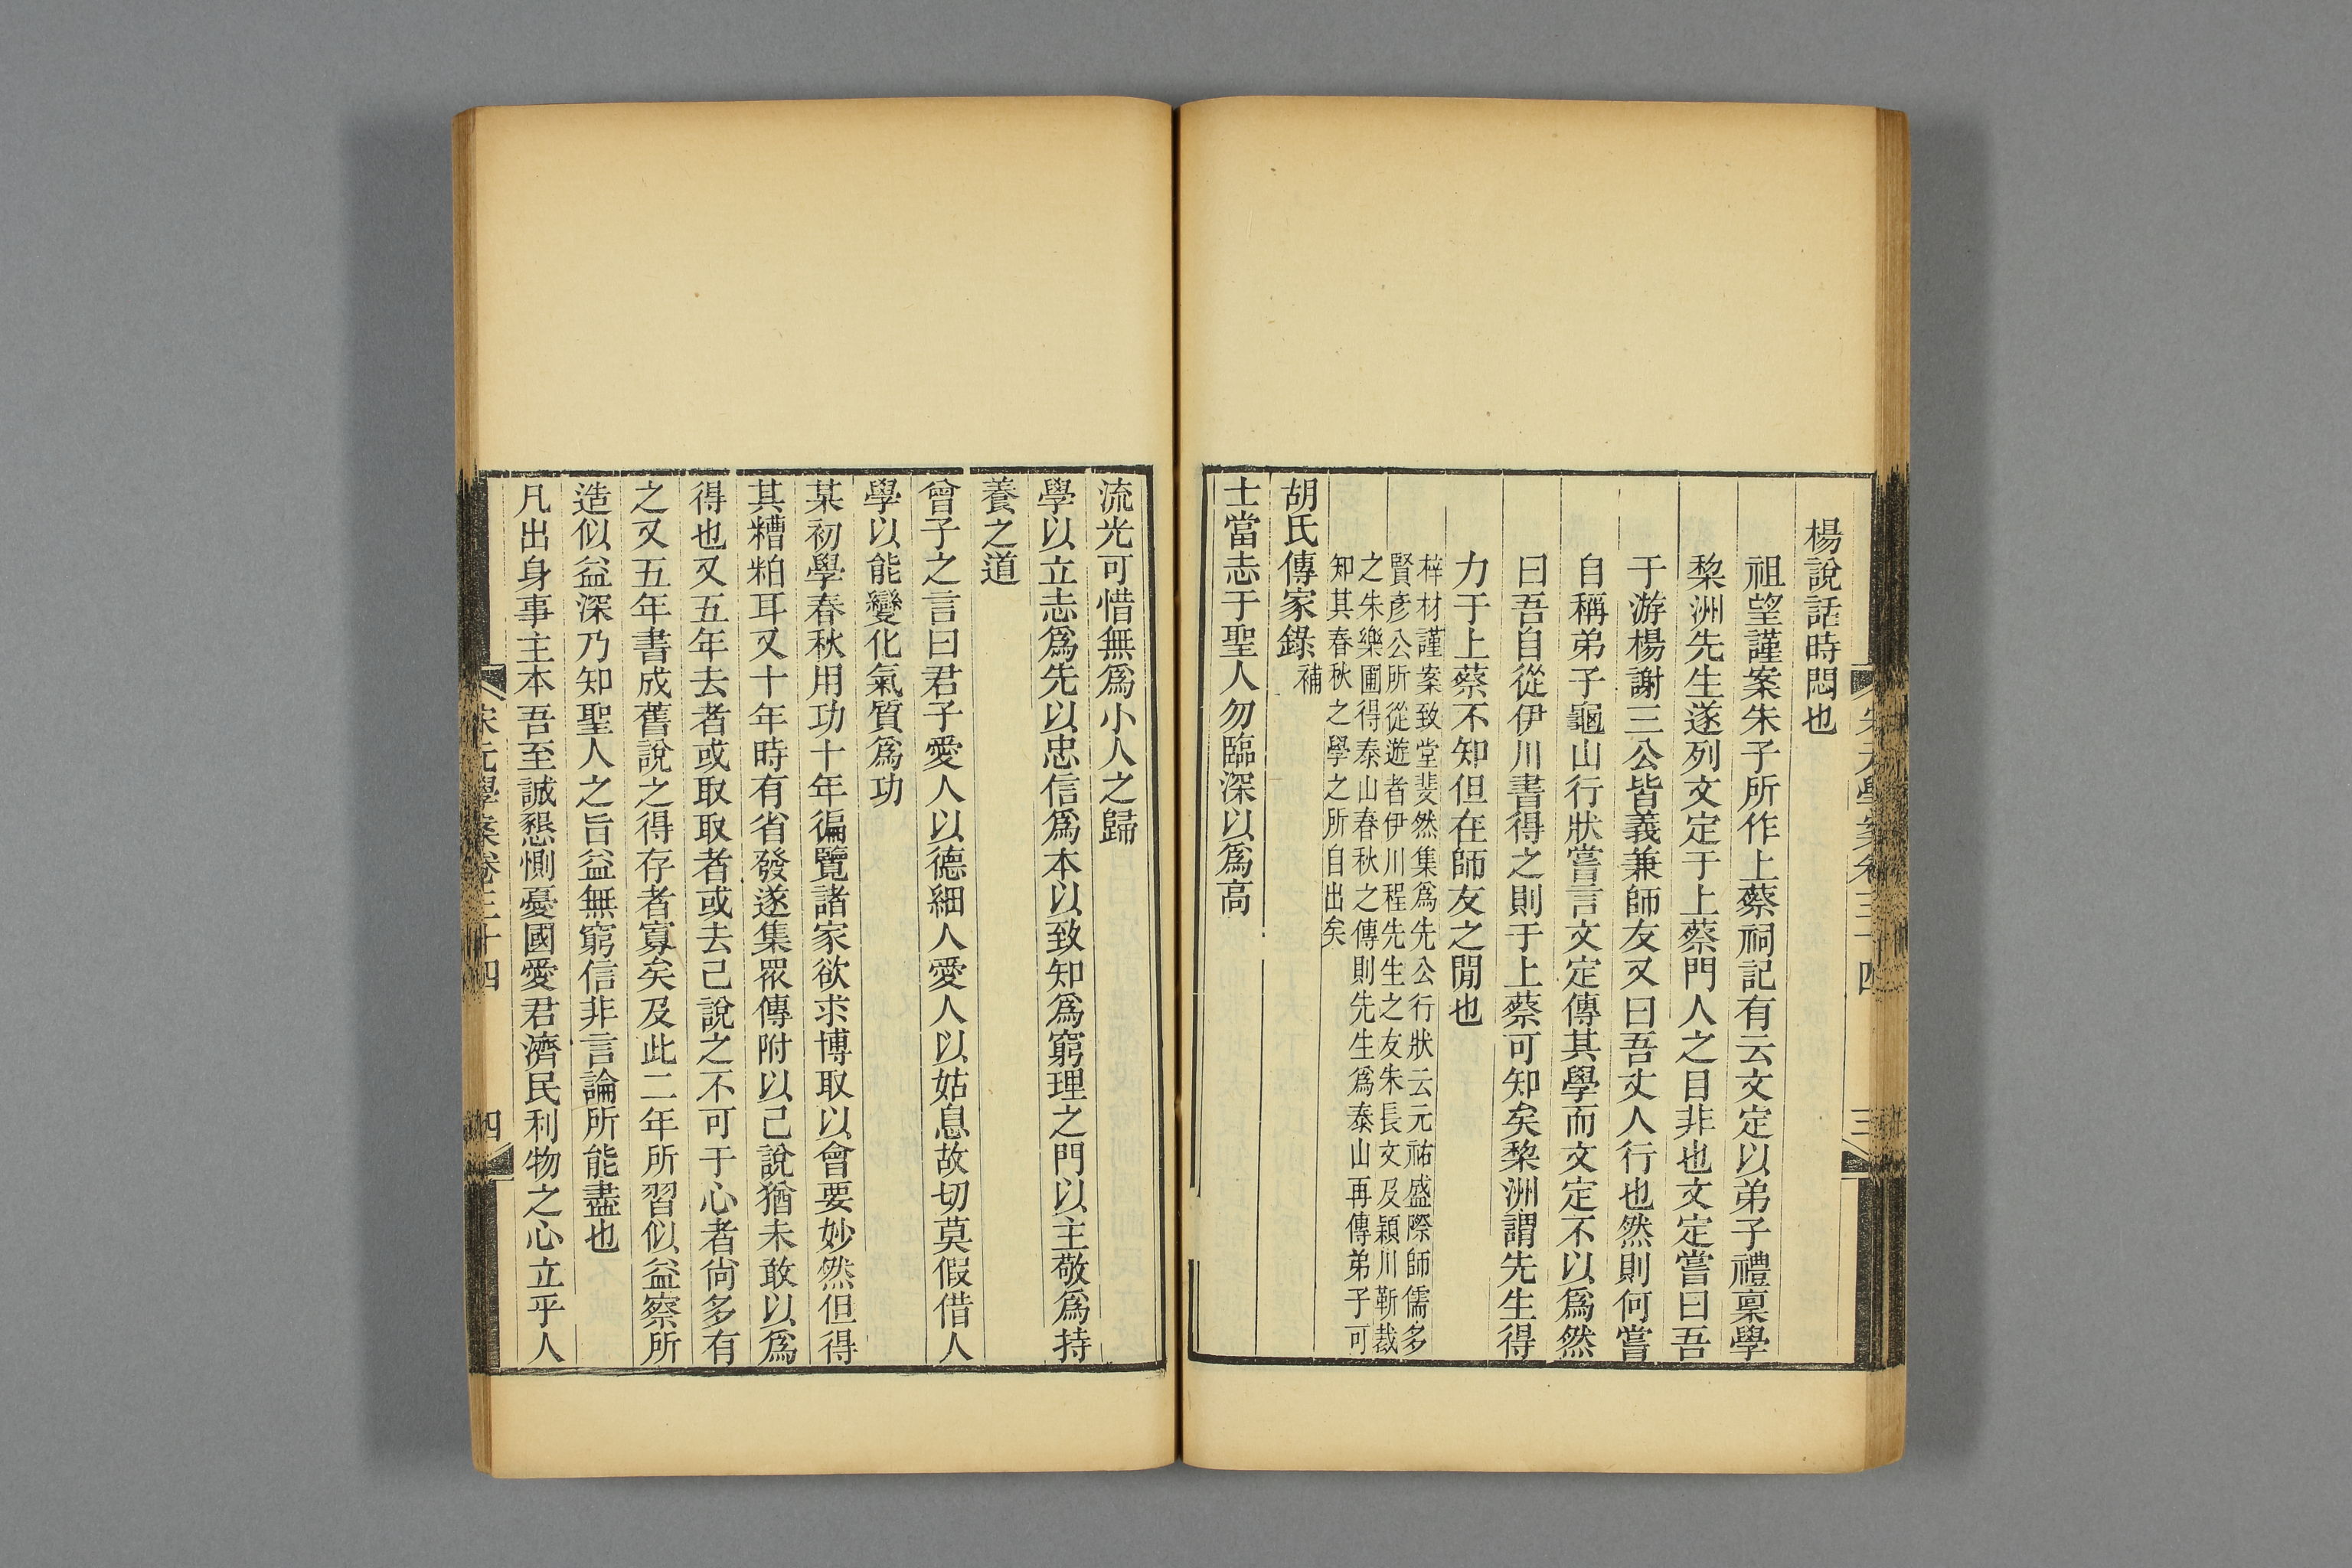 楊說話時悶也
祖望謹案朱子所作上蔡祠記有云文定以弟子禮稟學
棃洲先生遂列文定于上蔡門人之目非也文定嘗曰吾
于游楊謝三公皆義兼師友又曰吾丈人行也然則何嘗
自稱弟子龜山行狀嘗言文定傳其學而文定不以爲然
曰吾自從伊川書得之則于上蔡可知矣棃洲謂先生得
力于上蔡不知但在師友之閒也
梓材謹案致堂斐然集爲先公行狀云元祐盛際師儒多
賢彥公所從遊者伊川程先生之友朱長文及潁川靳裁
之朱樂圃得泰山春秋之傳則先生爲泰山再傳弟子可
知其春秋之學之所自出矣
胡氏傳家錄補
士當志于聖人勿臨深以爲高
宋元學案卷三十四
三
流光可惜無爲小人之歸
學以立志爲先以忠信爲本以致知爲窮理之門以主敬爲持
養之道
曾子之言曰君子愛人以德細人愛人以姑息故切莫假借人
學以能變化氣質爲功
某初學春秋用功十年徧覽諸家欲求博取以會要妙然但得
其糟粕耳又十年時有省發遂集眾傳附以己說猶未敢以爲
得也又五年去者或取取者或去己說之不可于心者尚多有
之又五年書成舊說之得存者寡矣及此二年所習似益察所
造似益深乃知聖人之旨益無窮信非言論所能盡也
凡出身事主本吾至誠懇惻憂國愛君濟民利物之心立乎人
宋元學案卷三十四
四